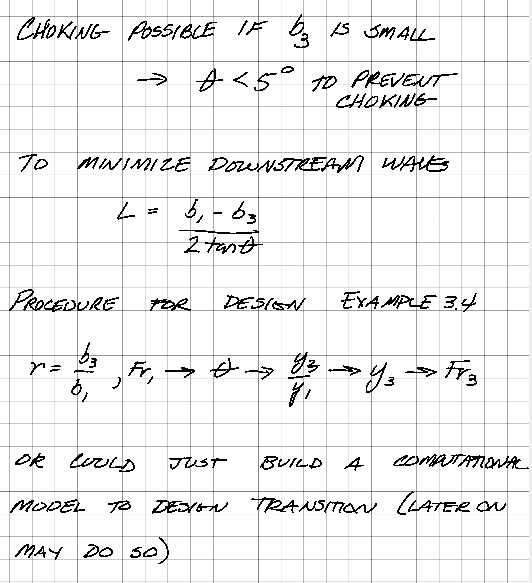 CHOKING POSSIBLE IF b₃ IS SMALL
→ θ < 5° TO PREVENT
CHOKING
TO MINIMIZE DOWNSTREAM WAVES
L = (b₁ - b₃) / (2 tanθ)
PROCEDURE FOR DESIGN EXAMPLE 3.4
r = b₃/b₁, Fr₁ → θ → y₃/y₁ → y₃ → Fr₃
OR COULD JUST BUILD A COMPUTATIONAL
MODEL TO DESIGN TRANSITION (LATER ON
MAY DO SO)